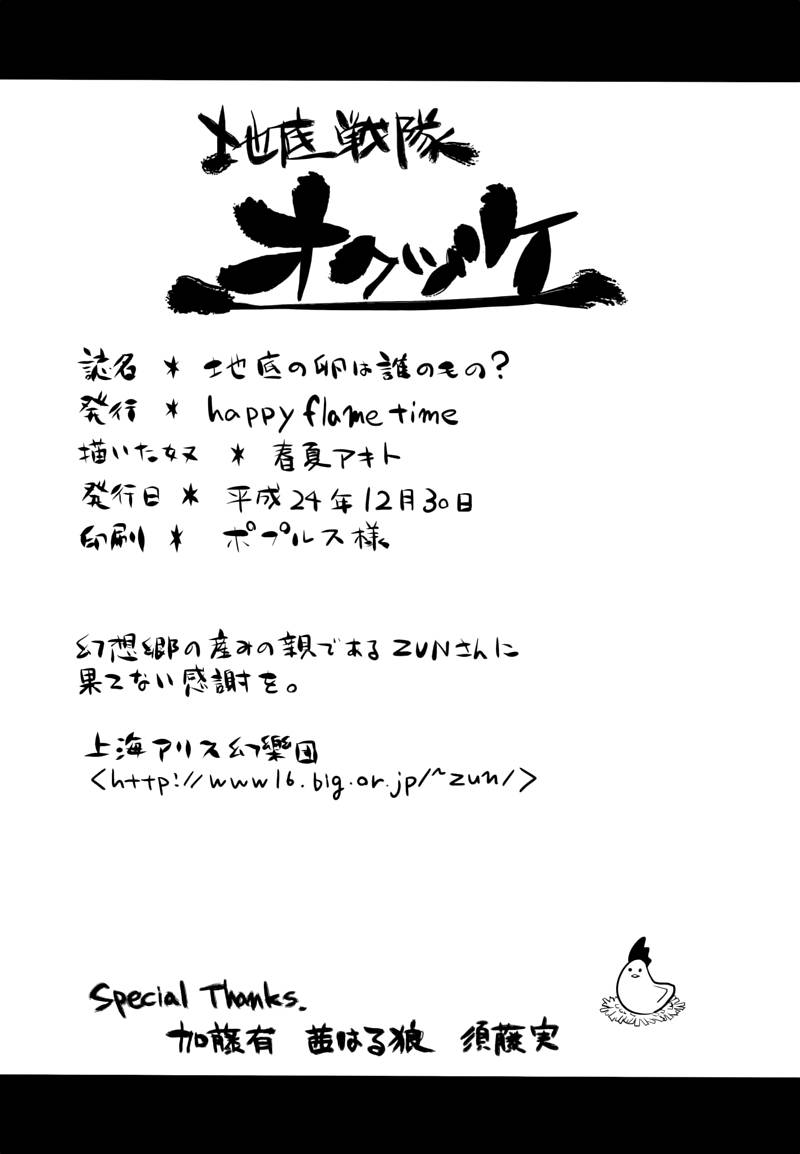 地底戦隊
オクヅケ
誌名 * 地底の卵は誰のもの?
発行 * happy flame time
描いた奴 * 春夏アキト
発行日 * 平成24年12月30日
印刷 * ポプルス様
幻想郷の産みの親であるZUNさんに
果てない感謝を。
上海アリス幻樂団
<http://www16.big.or.jp/~zun/>
Special Thanks.
加藤有 茜はる狼 須藤実